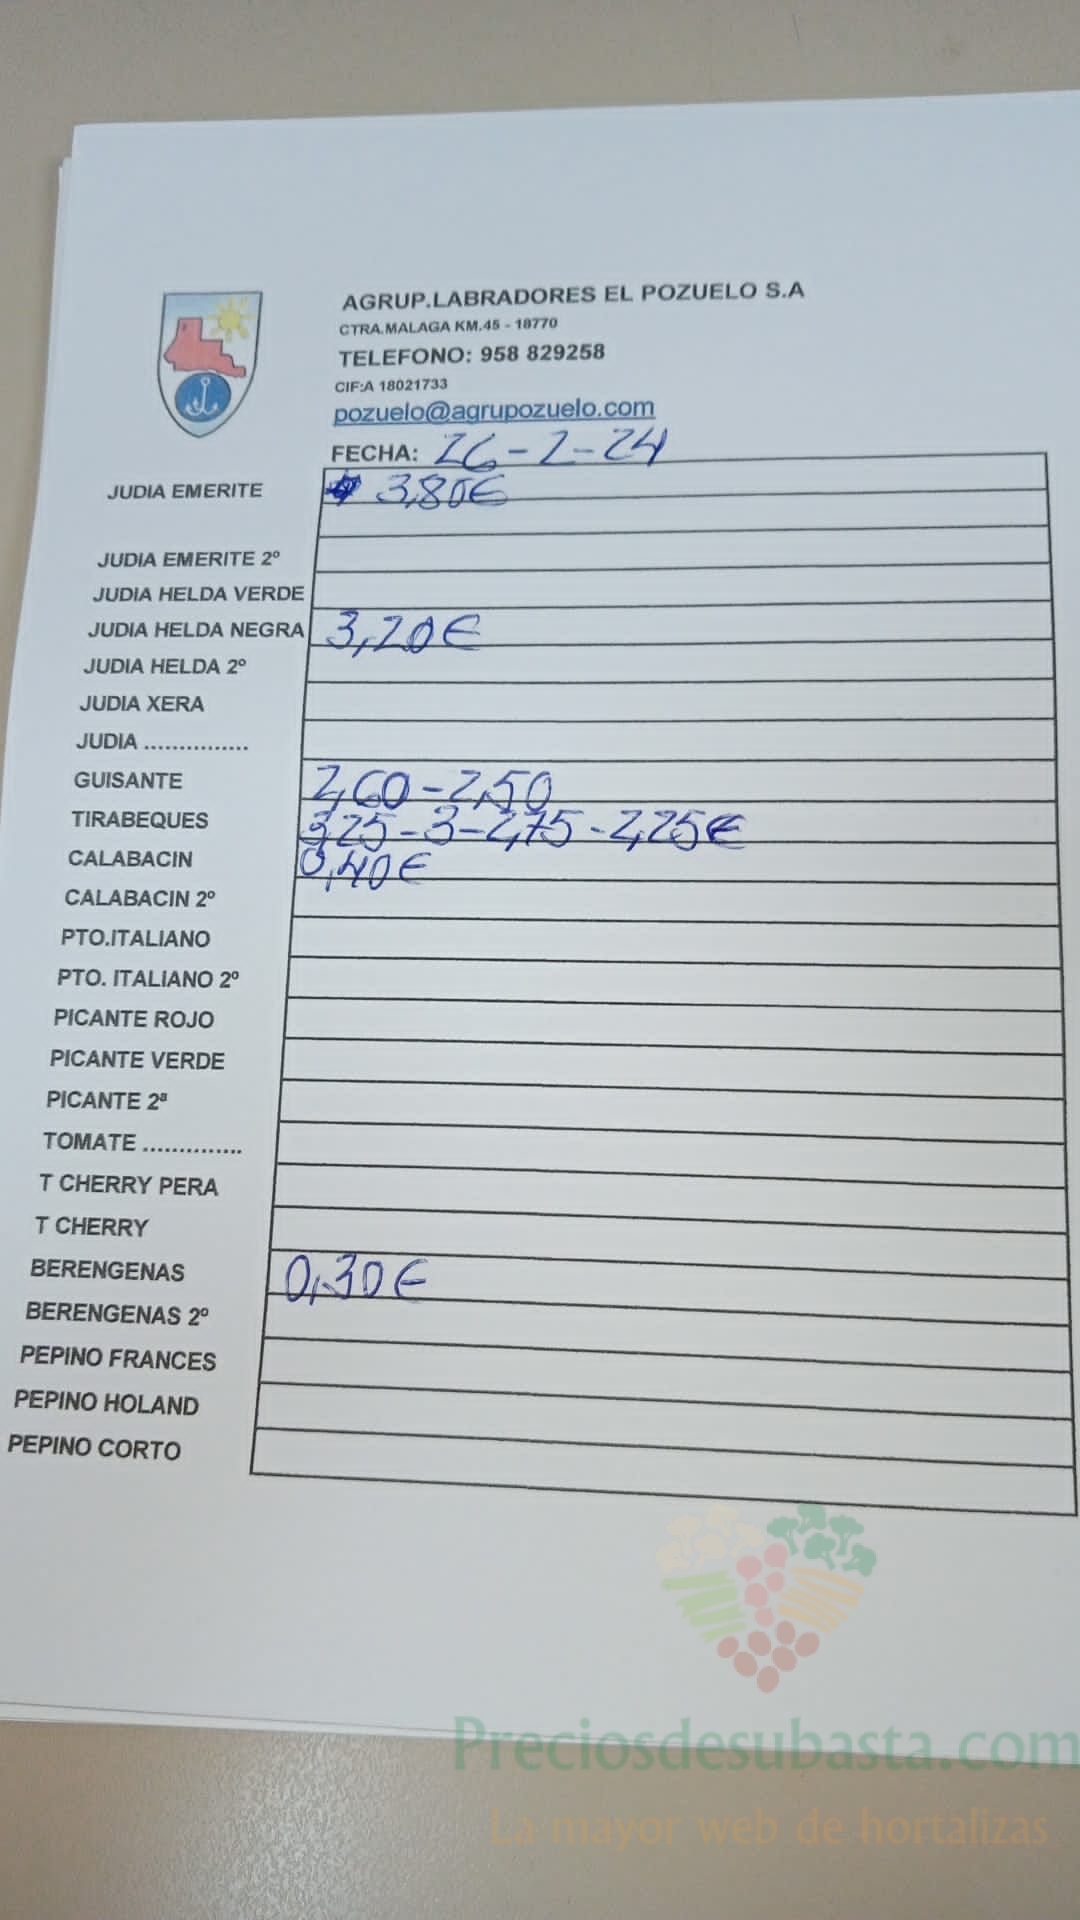 AGRUP.LABRADORES EL POZUELO S.A
CTRA.MALAGA KM.45 - 18770
TELEFONO: 958 829258
CIF:A 18021733
pozuelo@agrupozuelo.com
FECHA: 26-2-24
JUDIA EMERITE 3,80€
JUDIA EMERITE 2º
JUDIA HELDA VERDE
JUDIA HELDA NEGRA 3,20€
JUDIA HELDA 2º
JUDIA XERA
JUDIA ...............
GUISANTE 2,60-2,50
TIRABEQUES 3,25-3-2,75-2,25€
CALABACIN 0,40€
CALABACIN 2º
PTO.ITALIANO
PTO. ITALIANO 2º
PICANTE ROJO
PICANTE VERDE
PICANTE 2ª
TOMATE ..............
T CHERRY PERA
T CHERRY
BERENGENAS 0,30€
BERENGENAS 2º
PEPINO FRANCES
PEPINO HOLAND
PEPINO CORTO
Preciosdesubasta.com
La mayor web de hortalizas